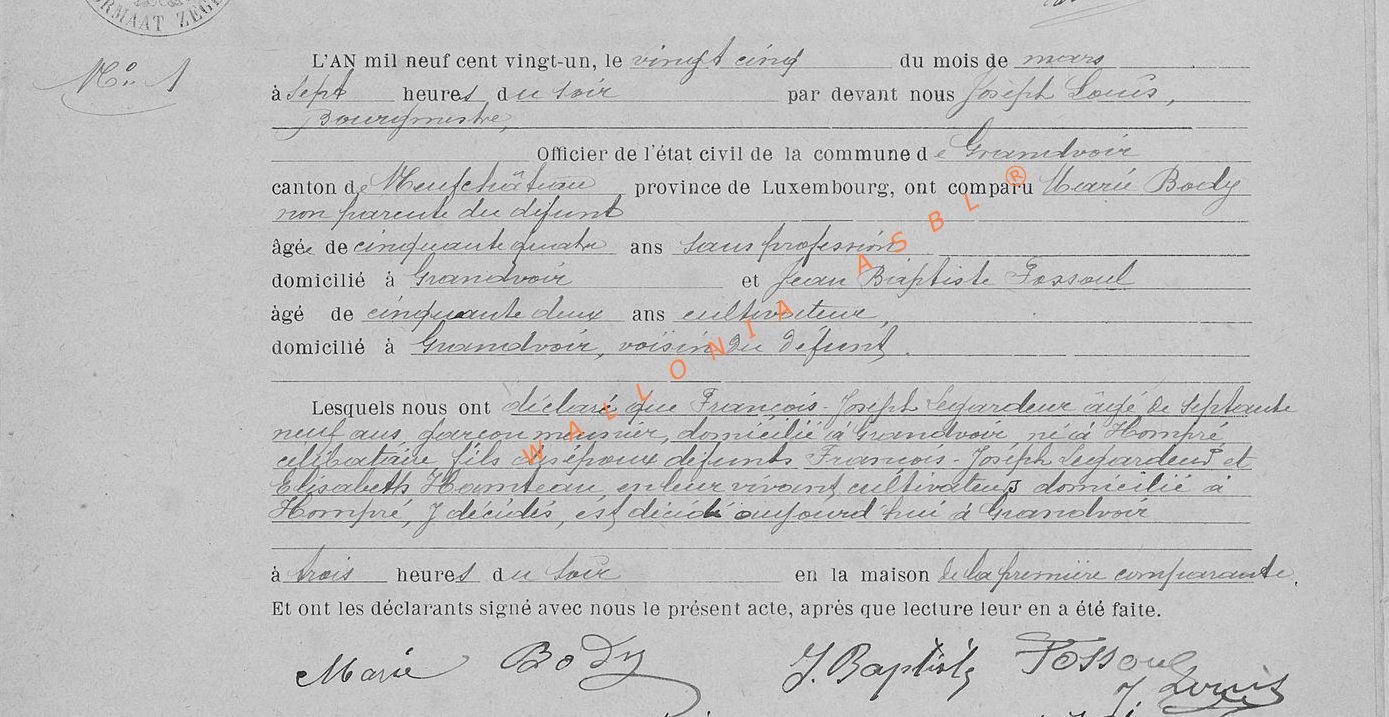 RMAAT ZEGE
N° 1
L'AN mil neuf cent vingt-un, le vingt cinq du mois de mars
à sept heures du soir par devant nous Joseph Louis,
Bourgmestre,
Officier de l'état civil de la commune de Grandvoir
canton de Neufchâteau province de Luxembourg, ont comparu Marie Body
non parente du défunt
âgée de cinquante quatre ans sans profession
domicilié à Grandvoir et Jean Baptiste Fossoul
âgé de cinquante deux ans cultivateur,
domicilié à Grandvoir, voisin du défunt.
Lesquels nous ont déclaré que François-Joseph Legardeur âgé de septante
neuf ans, garçon meunier, domicilié à Grandvoir, né à Hompré,
célibataire, fils des époux défunts François-Joseph Legardeur et
Elisabeth Hamteau, en leur vivant cultivateurs domicilié à
Hompré, y décédés, est décédé aujourd'hui à Grandvoir
à trois heures du soir en la maison de la première comparante.
Et ont les déclarants signé avec nous le présent acte, après que lecture leur en a été faite.
Marie Body J. Baptiste Fossoul
J. Louis
WALLONIA ASBL ®